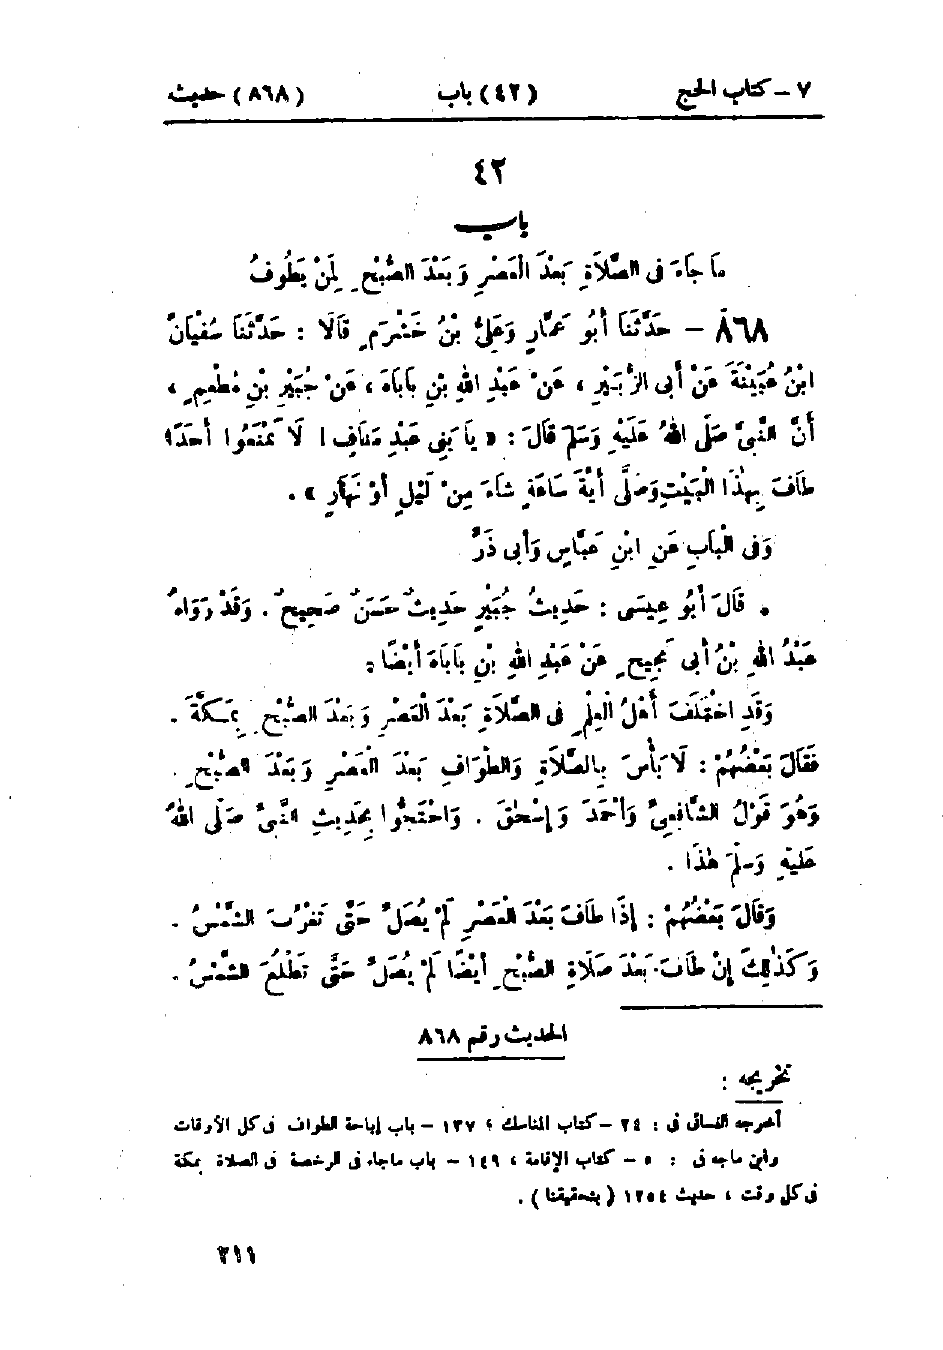 ٧ – كتاب الحج (٤٢) باب (٨٦٨) حديث
٤٢
باب
مَا جَاءَ فِى الصَّلَاةِ بَعْدَ الْعَصْرِ وَبَعْدَ الصُّبْحِ لِمَنْ يَطُوفُ
٨٦٨ – حَدَّثَنَا أَبُو عَمَّارٍ وَعَلِىُّ بْنُ خَشْرَمٍ قَالَا : حَدَّثَنَا سُفْيَانُ
ابْنُ عُيَيْنَةَ عَنْ أَبِى الزُّبَيْرِ ، عَنْ عَبْدِ اللهِ بْنِ بَابَاهَ ، عَنْ جُبَيْرِ بْنِ مُطْعِمٍ ،
أَنَّ النَّبِىَّ صَلَّى اللهُ عَلَيْهِ وَسَلَّمَ قَالَ : « يَا بَنِى عَبْدِ مَنَافٍ ! لَا تَمْنَعُوا أَحَدًا
طَافَ بِهٰذَا الْبَيْتِ وَصَلَّى أَيَّةَ سَاعَةٍ شَاءَ مِنْ لَيْلٍ أَوْ نَهَارٍ » .
وَفِى الْبَابِ عَنِ ابْنِ عَبَّاسٍ وَأَبِى ذَرٍّ
• قَالَ أَبُو عِيسَى : حَدِيثُ جُبَيْرٍ حَدِيثٌ حَسَنٌ صَحِيحٌ . وَقَدْ رَوَاهُ
عَبْدُ اللهِ بْنُ أَبِى نَجِيحٍ عَنْ عَبْدِ اللهِ بْنِ بَابَاهَ أَيْضًا :
وَقَدِ اخْتَلَفَ أَهْلُ الْعِلْمِ فِى الصَّلَاةِ بَعْدَ الْعَصْرِ وَبَعْدَ الصُّبْحِ بِمَكَّةَ .
فَقَالَ بَعْضُهُمْ : لَا بَأْسَ بِالصَّلَاةِ وَالطَّوَافِ بَعْدَ الْعَصْرِ وَبَعْدَ الصُّبْحِ .
وَهُوَ قَوْلُ الشَّافِعِىِّ وَأَحْمَدَ وَإِسْحٰقَ . وَاحْتَجُّوا بِحَدِيثِ النَّبِىِّ صَلَّى اللهُ
عَلَيْهِ وَسَلَّمَ هٰذَا .
وَقَالَ بَعْضُهُمْ : إِذَا طَافَ بَعْدَ الْعَصْرِ لَمْ يُصَلِّ حَتَّى تَغْرُبَ الشَّمْسُ .
وَكَذٰلِكَ إِنْ طَافَ بَعْدَ صَلَاةِ الصُّبْحِ أَيْضًا لَمْ يُصَلِّ حَتَّى تَطْلُعَ الشَّمْسُ .
الحديث رقم ٨٦٨
تخريجه :
أخرجه النسائى فى : ٢٤ – كتاب المناسك ، ١٣٧ – باب إباحة الطواف فى كل الأوقات
وابن ماجه فى : ٥ – كتاب الإقامة ، ١٤٩ – باب ماجاء فى الرخصة فى الصلاة بمكة
فى كل وقت ، حديث ١٢٥٤ ( بتحقيقنا ) .
٢١١